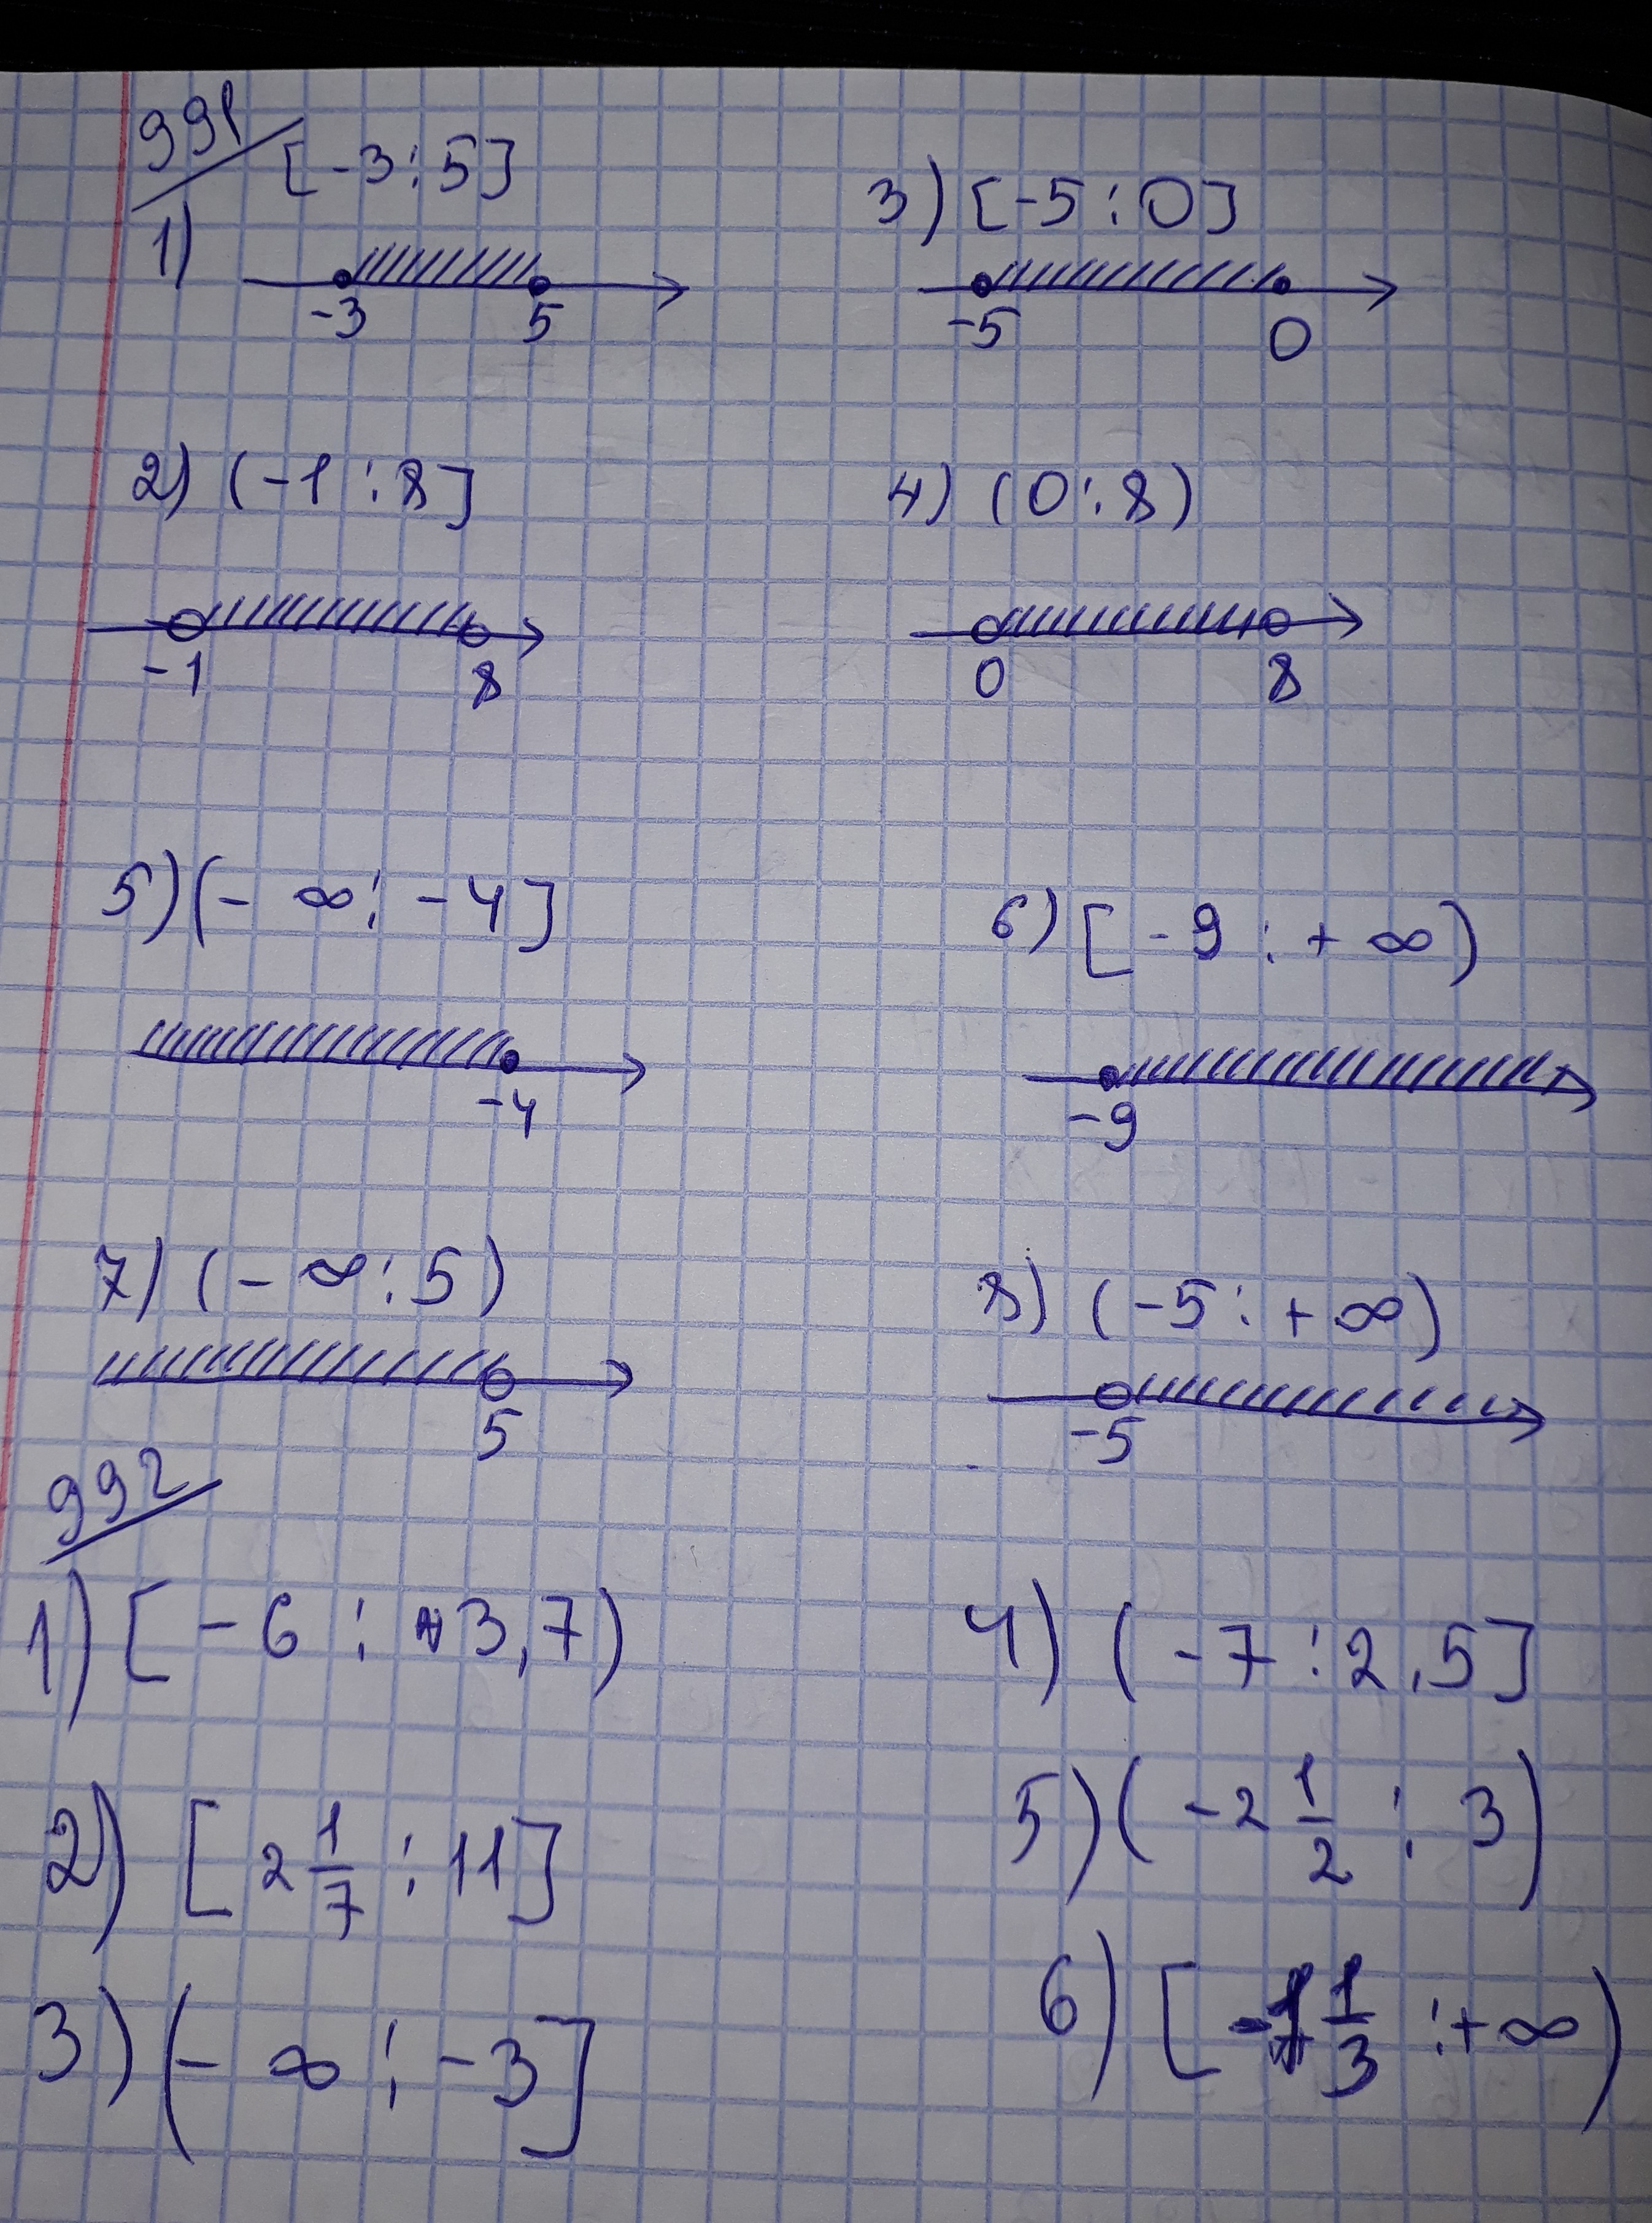 991
[-3 ; 5]
1)
-3 5
3) [-5 ; 0]
-5 0
2) (-1 ; 8]
-1 8
4) (0 ; 8)
0 8
5) (- ∞ ; -4]
-4
6) [-9 ; + ∞)
-9
7) (- ∞ ; 5)
5
8) (-5 ; + ∞)
-5
992
1) [-6 ; 3,7)
2) [2 1/7 ; 11]
3) (- ∞ ; -3]
4) (-7 ; 2,5]
5) (-2 1/2 ; 3)
6) [-1 1/3 ; + ∞)